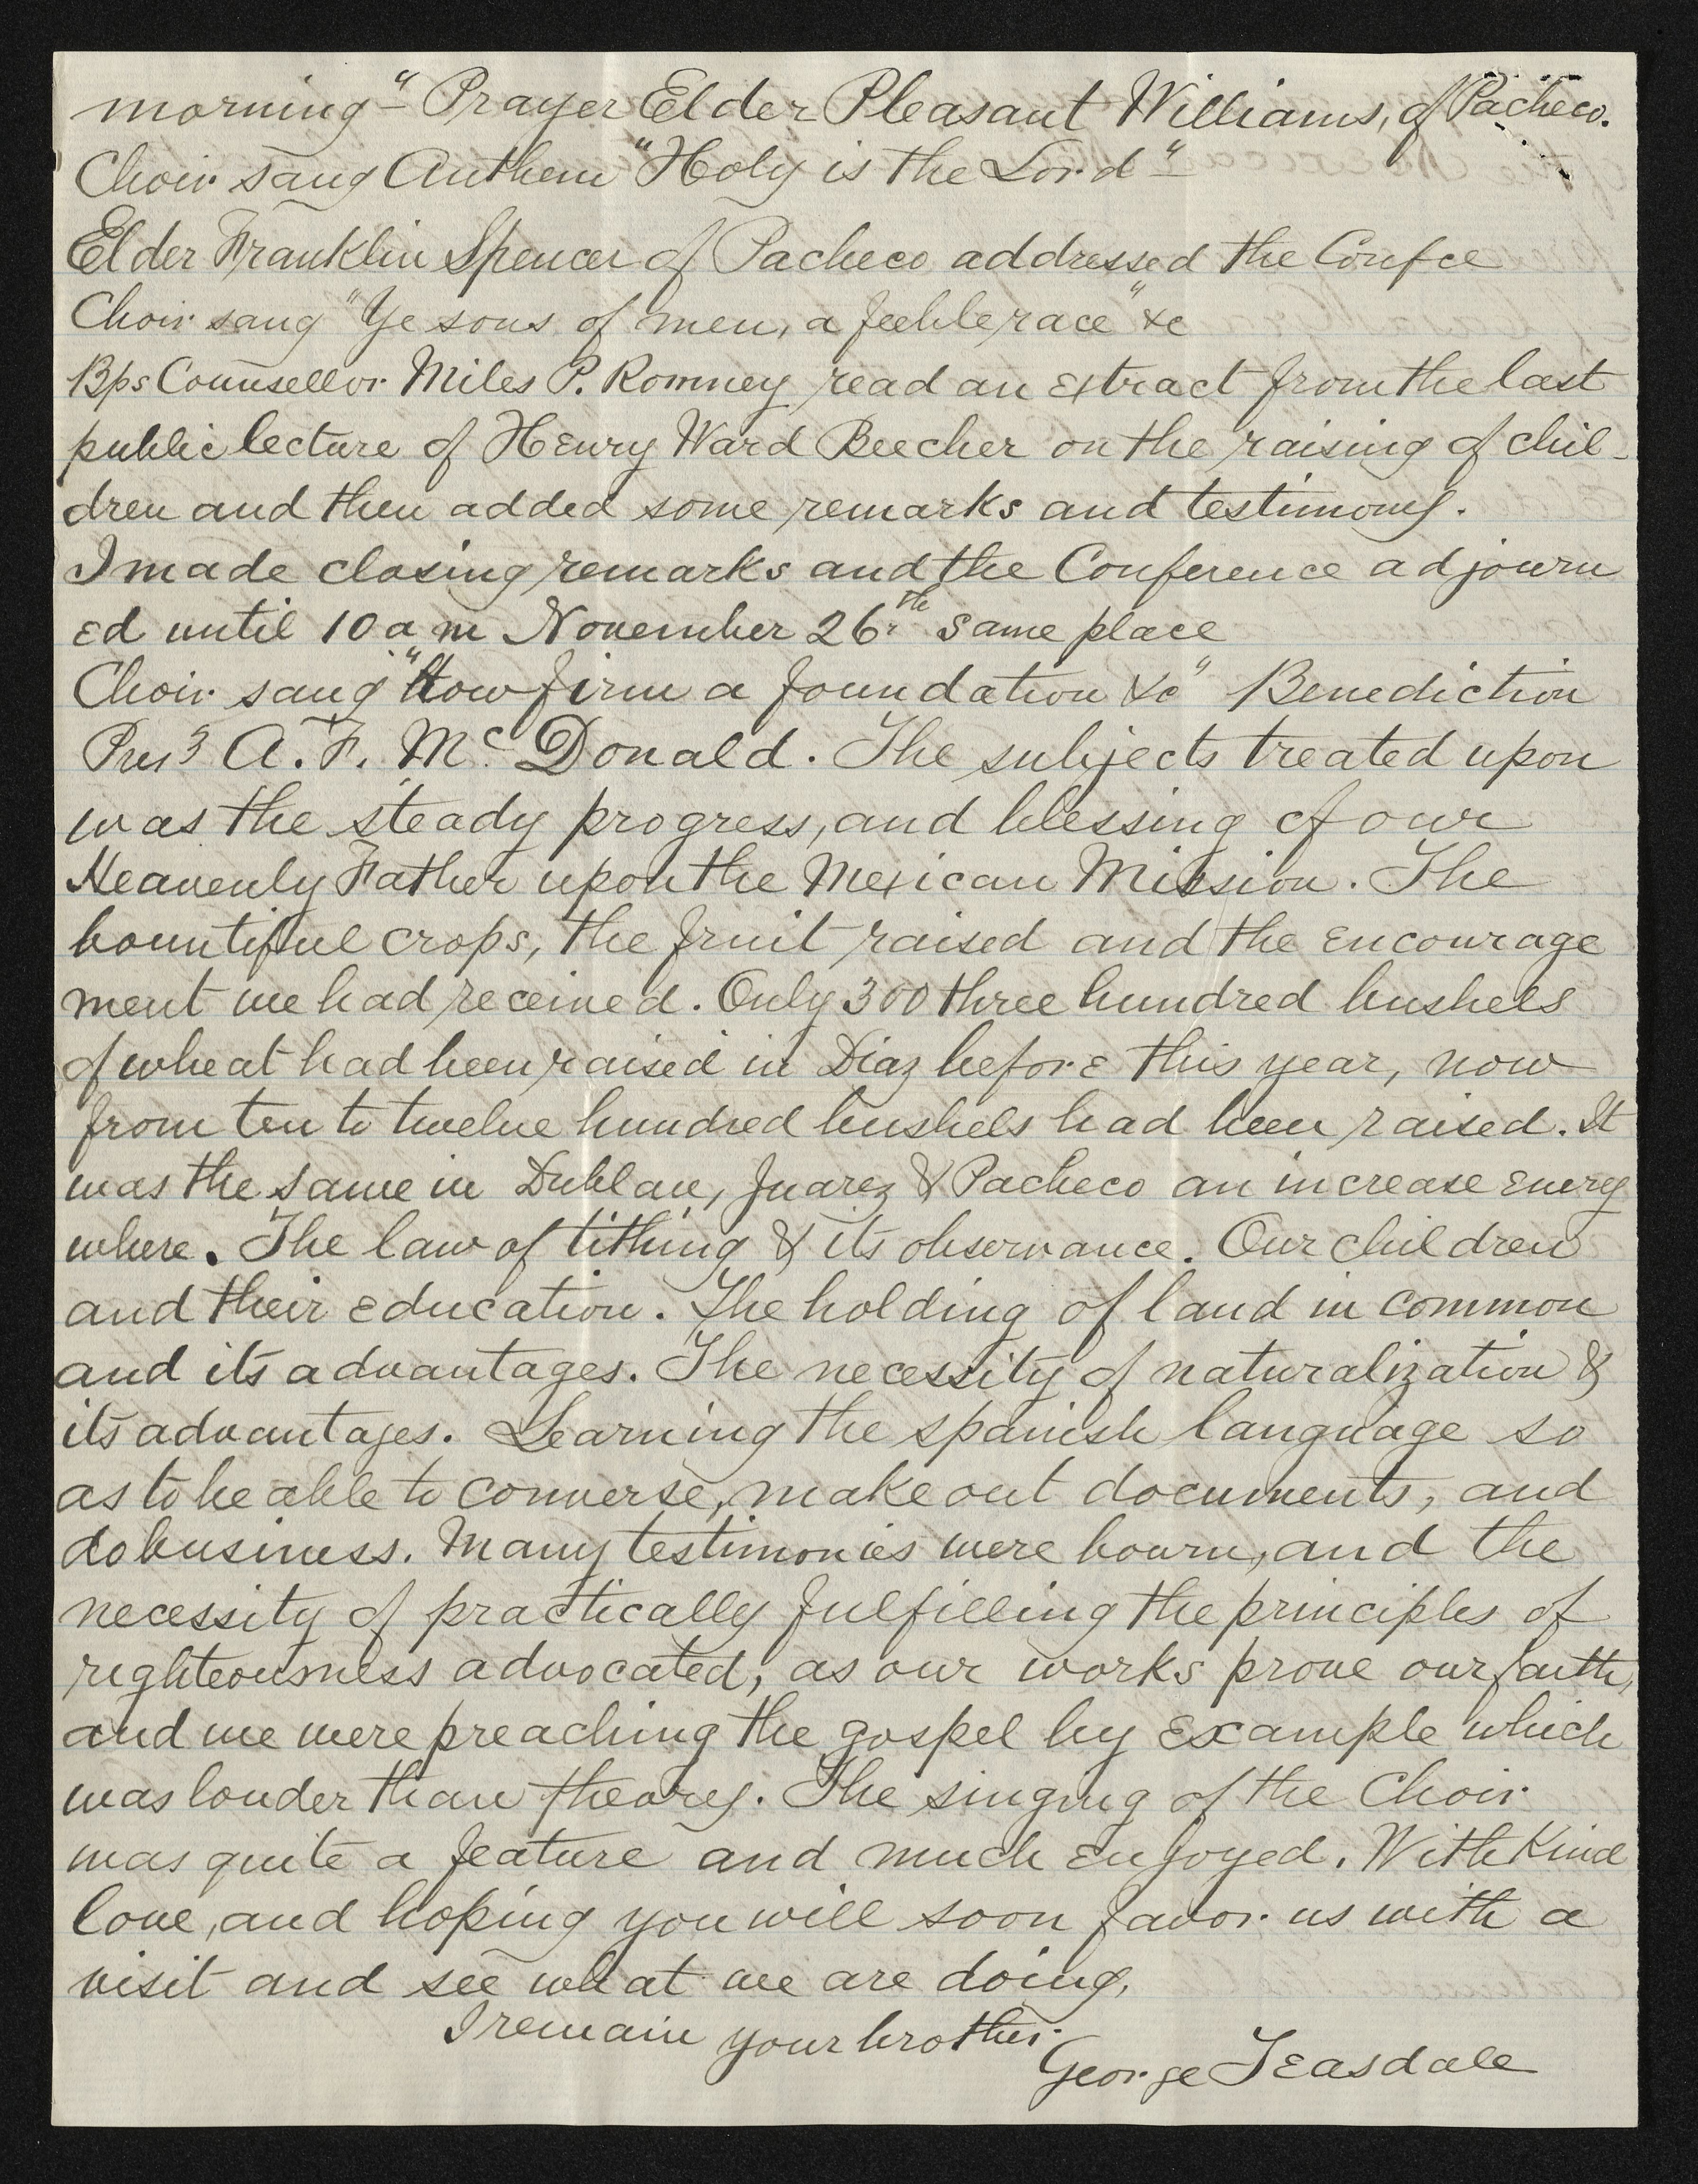 morning" Prayer Elder Pleasant Williams, of Pacheco.
Choir sang Anthem "Holy is the Lord"
Elder Franklin Spencer of Pacheco addressed the Confce
Choir sang "Ye sons of men, a feeble race" &c
Bps Counsellor Miles P. Romney read an extract from the last
public lecture of Henry Ward Beecher on the raising of chil-
dren and then added some remarks and testimony.
I made closing remarks and the Conference adjourn
ed until 10 a m November 26th same place
Choir sang "How firm a foundation &c" Benediction
Pres A. F. Mc Donald. The subjects treated upon
was the steady progress, and blessing of our
Heavenly Father upon the Mexican Mission. The
bountiful crops, the fruit raised and the encourage
ment we had received. Only 300 three hundred bushels
of wheat had been raised in Diaz before this year, now
from ten to twelve hundred bushels had been raised. It
was the same in Dublan, Juarez & Pacheco an increase every
where. The law of tithing & its observance. Our children
and their education. The holding of land in common
and its advantages. The necessity of naturalization &
its advantages. Learning the spanish language so
as to be able to converse, make out documents, and
do business. Many testimonies were bourn, and the
necessity of practically fulfilling the principles of
righteousness advocated, as our works prove our faith,
and we were preaching the gospel by example which
was louder than theory. The singing of the Choir
was quite a feature and much enjoyed. With Kind
love, and hoping you will soon favor us with a
visit and see what we are doing,
I remain your brother
George Teasdale